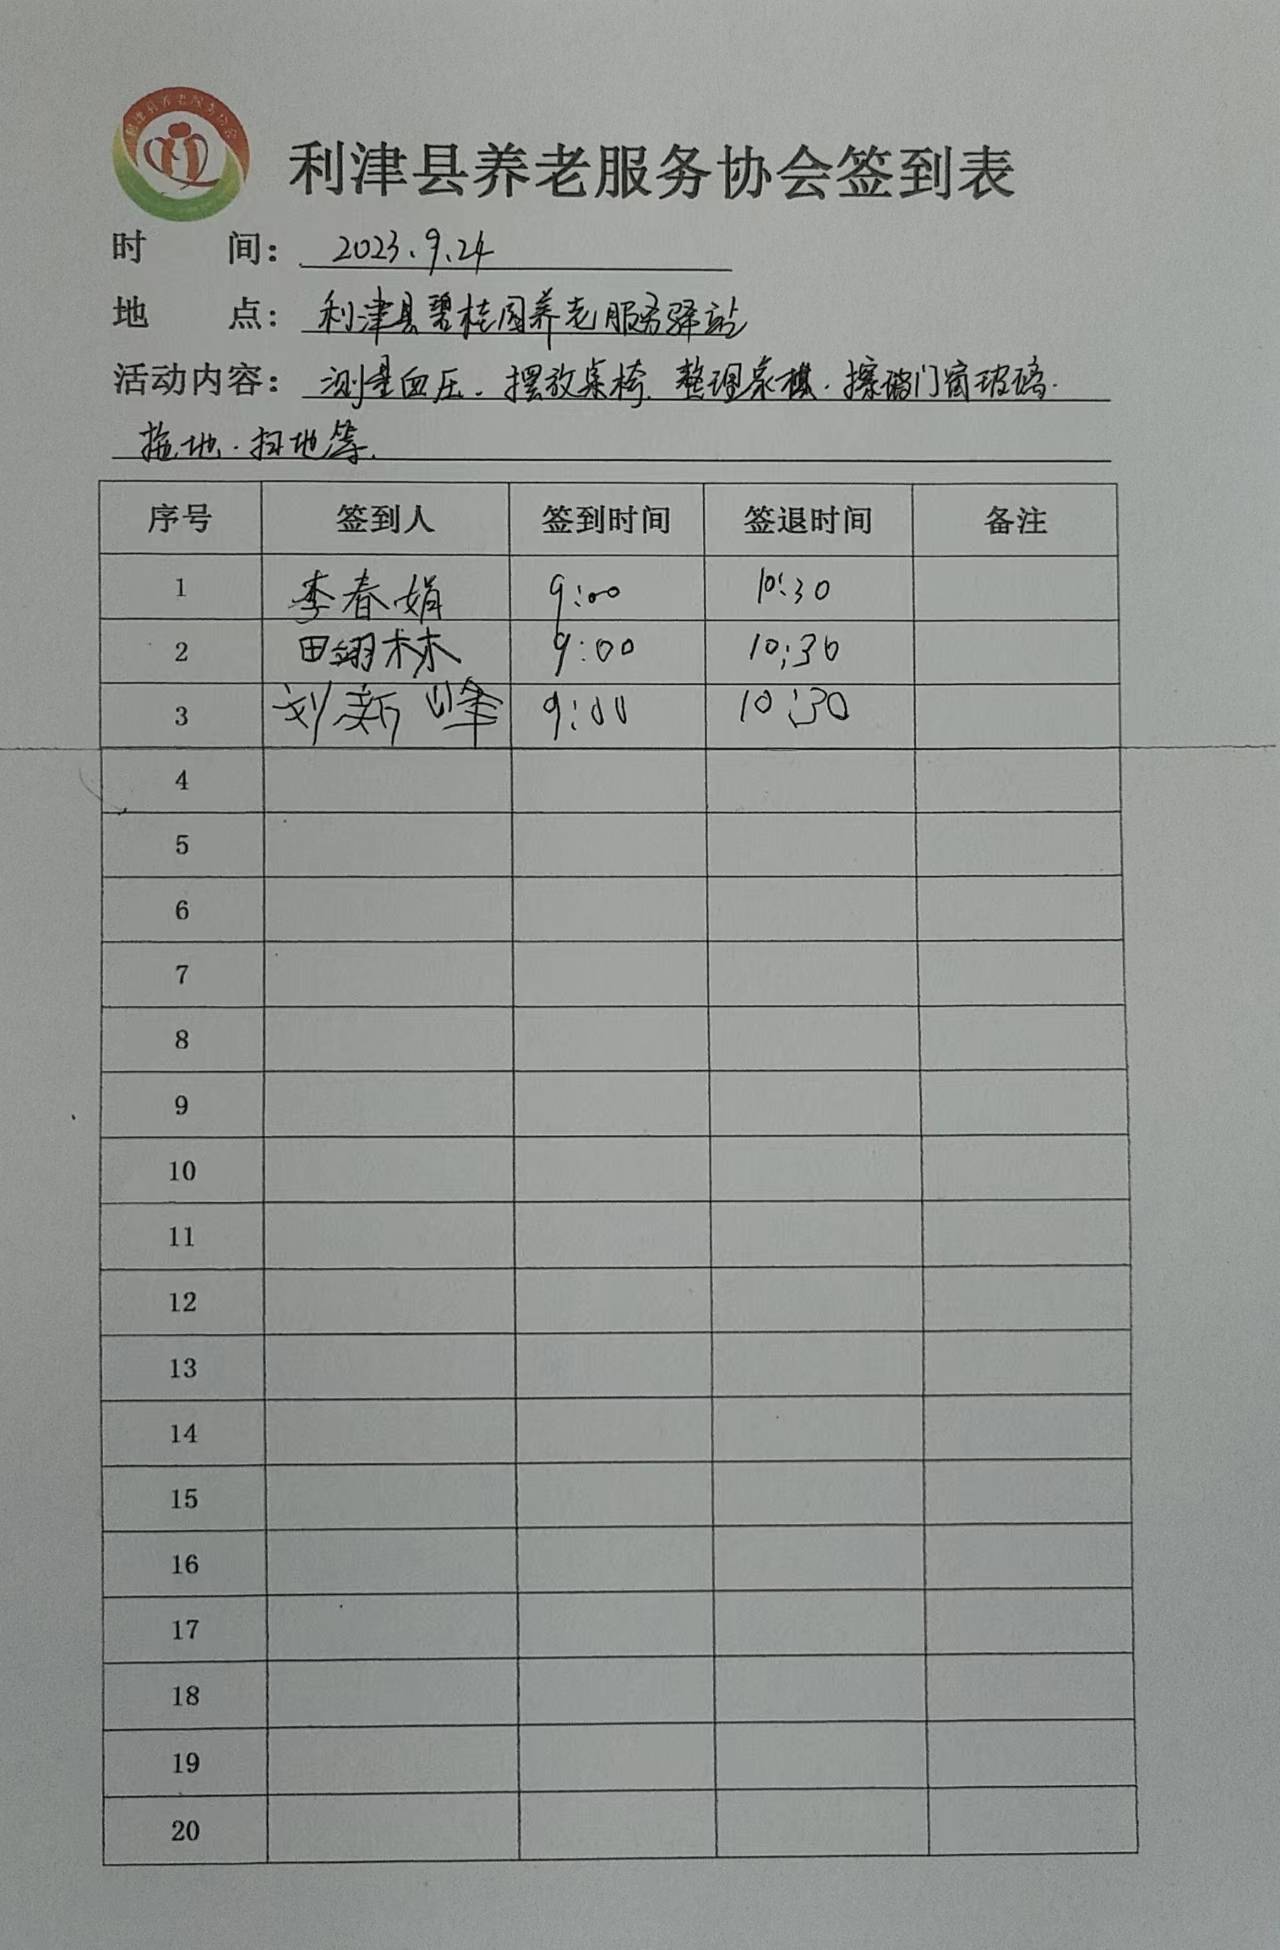 利津县养老服务协会
利津县养老服务协会签到表
时 间: 2023.9.24
地 点: 利津县碧桂园养老服务驿站
活动内容: 测量血压. 摆放桌椅. 整理桌棋. 擦玻门窗玻璃.
拖地. 扫地等.
序号 签到人 签到时间 签退时间 备注
1 李春娟 9:00 10:30
2 田翊林 9:00 10:30
3 刘新峰 9:00 10:30
4
5
6
7
8
9
10
11
12
13
14
15
16
17
18
19
20